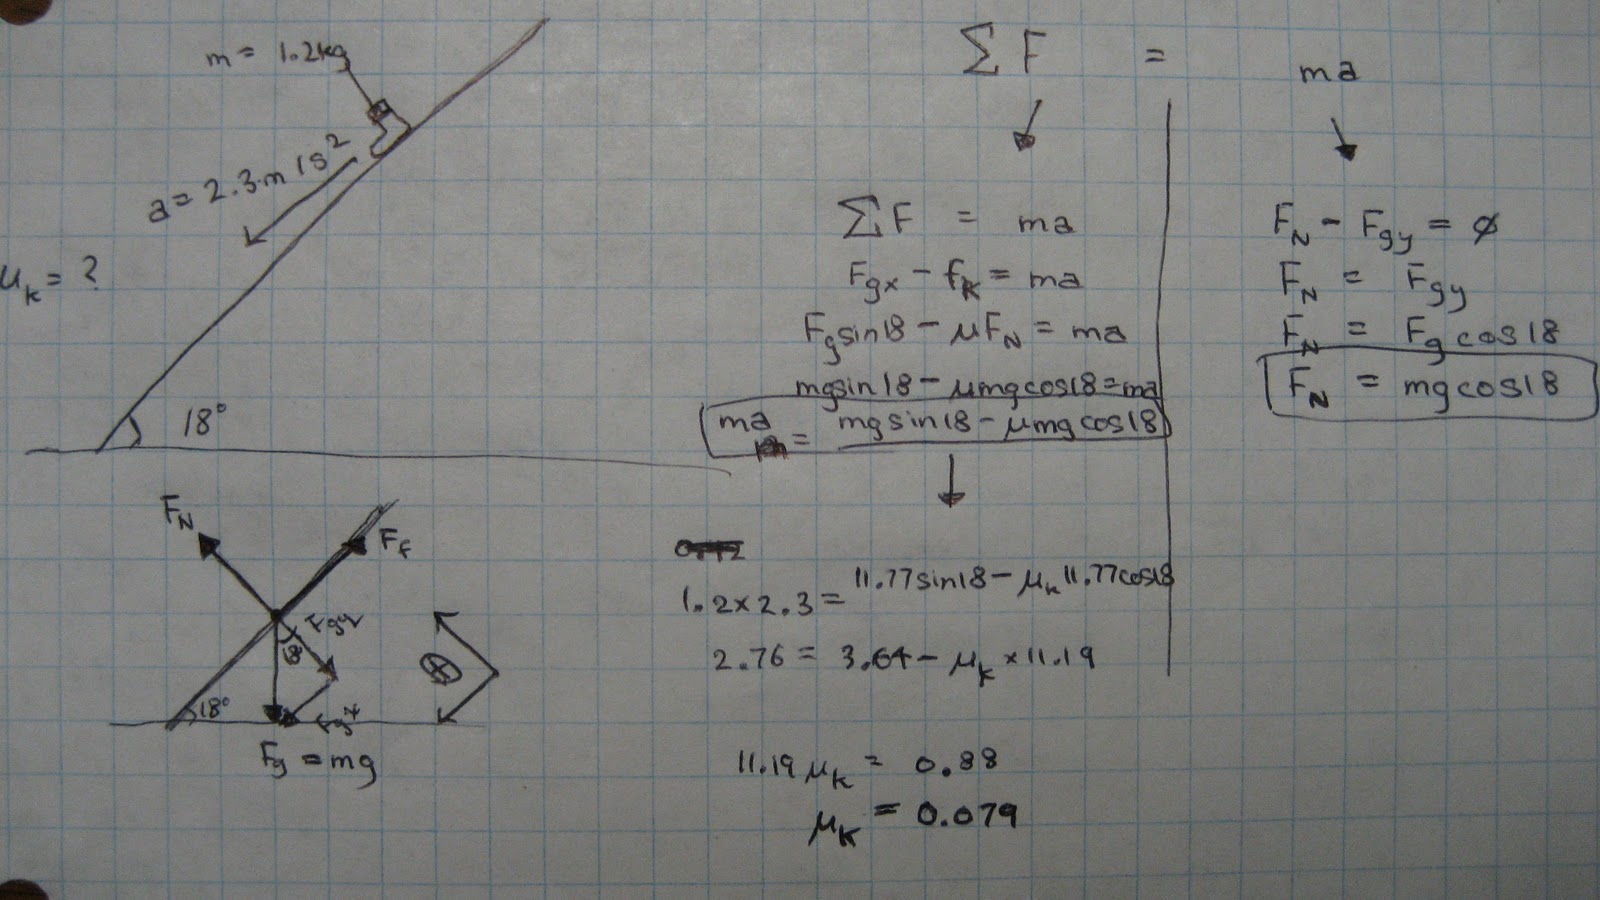 m = 1.2kg
a = 2.3 m/s²
μk = ?
18°
FN
Ff
Fgy
18
18°
Fgx
Fg = mg
ΣF = ma
ΣF = ma
Fgx - fk = ma
Fgsin18 - μFN = ma
mgsin18 - μmgcos18 = ma
ma = mgsin18 - μmgcos18
1.2 × 2.3 = 11.77sin18 - μk 11.77cos18
2.76 = 3.64 - μk × 11.19
11.19 μk = 0.88
μk = 0.079
FN - Fgy = ∅
FN = Fgy
FN = Fg cos18
FN = mgcos18